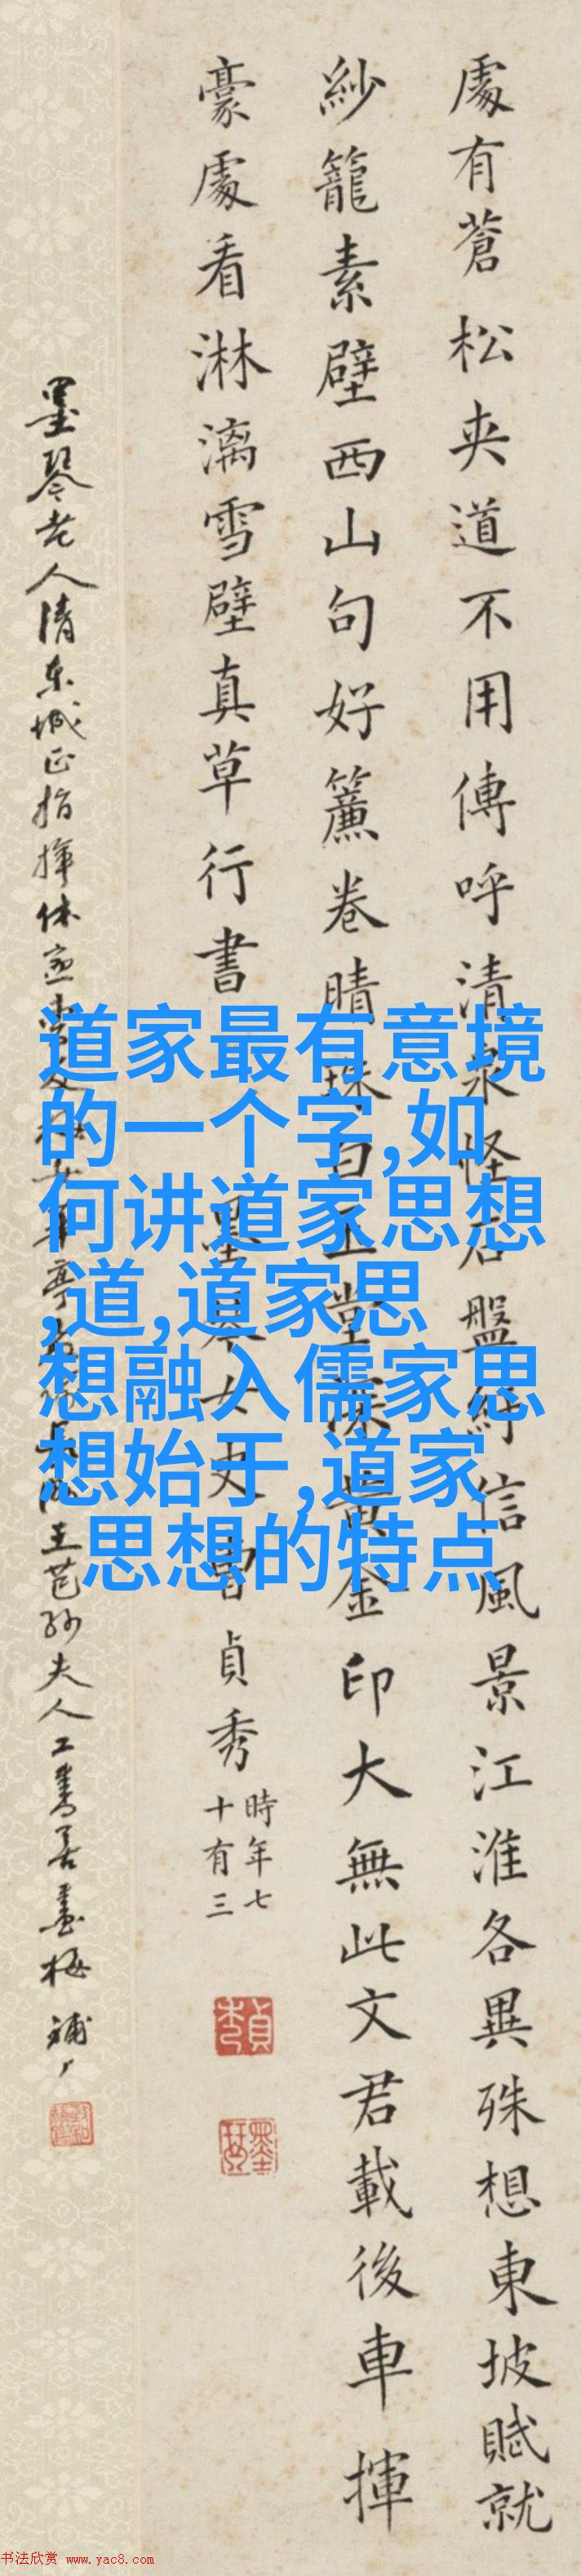 處有蒼松夾道不用傳呼清泉怪石盤紆信風景江淮各異殊想東坡賦就
紗籠素壁西山句好簾卷晴珠白玉堂深黃金印大無此文君載後車揮
豪處看淋漓雪壁真草行書
墨琴女史曹貞秀
時年七
十有三
墨琴老人清東城正指揮休
王芑孫夫人工書善畫梅
道家最有意境
的一个字,如
何讲道家思想
,道,道家思
想融入儒家思
想始于,道家
思想的特点
书法欣赏 www.yac8.com